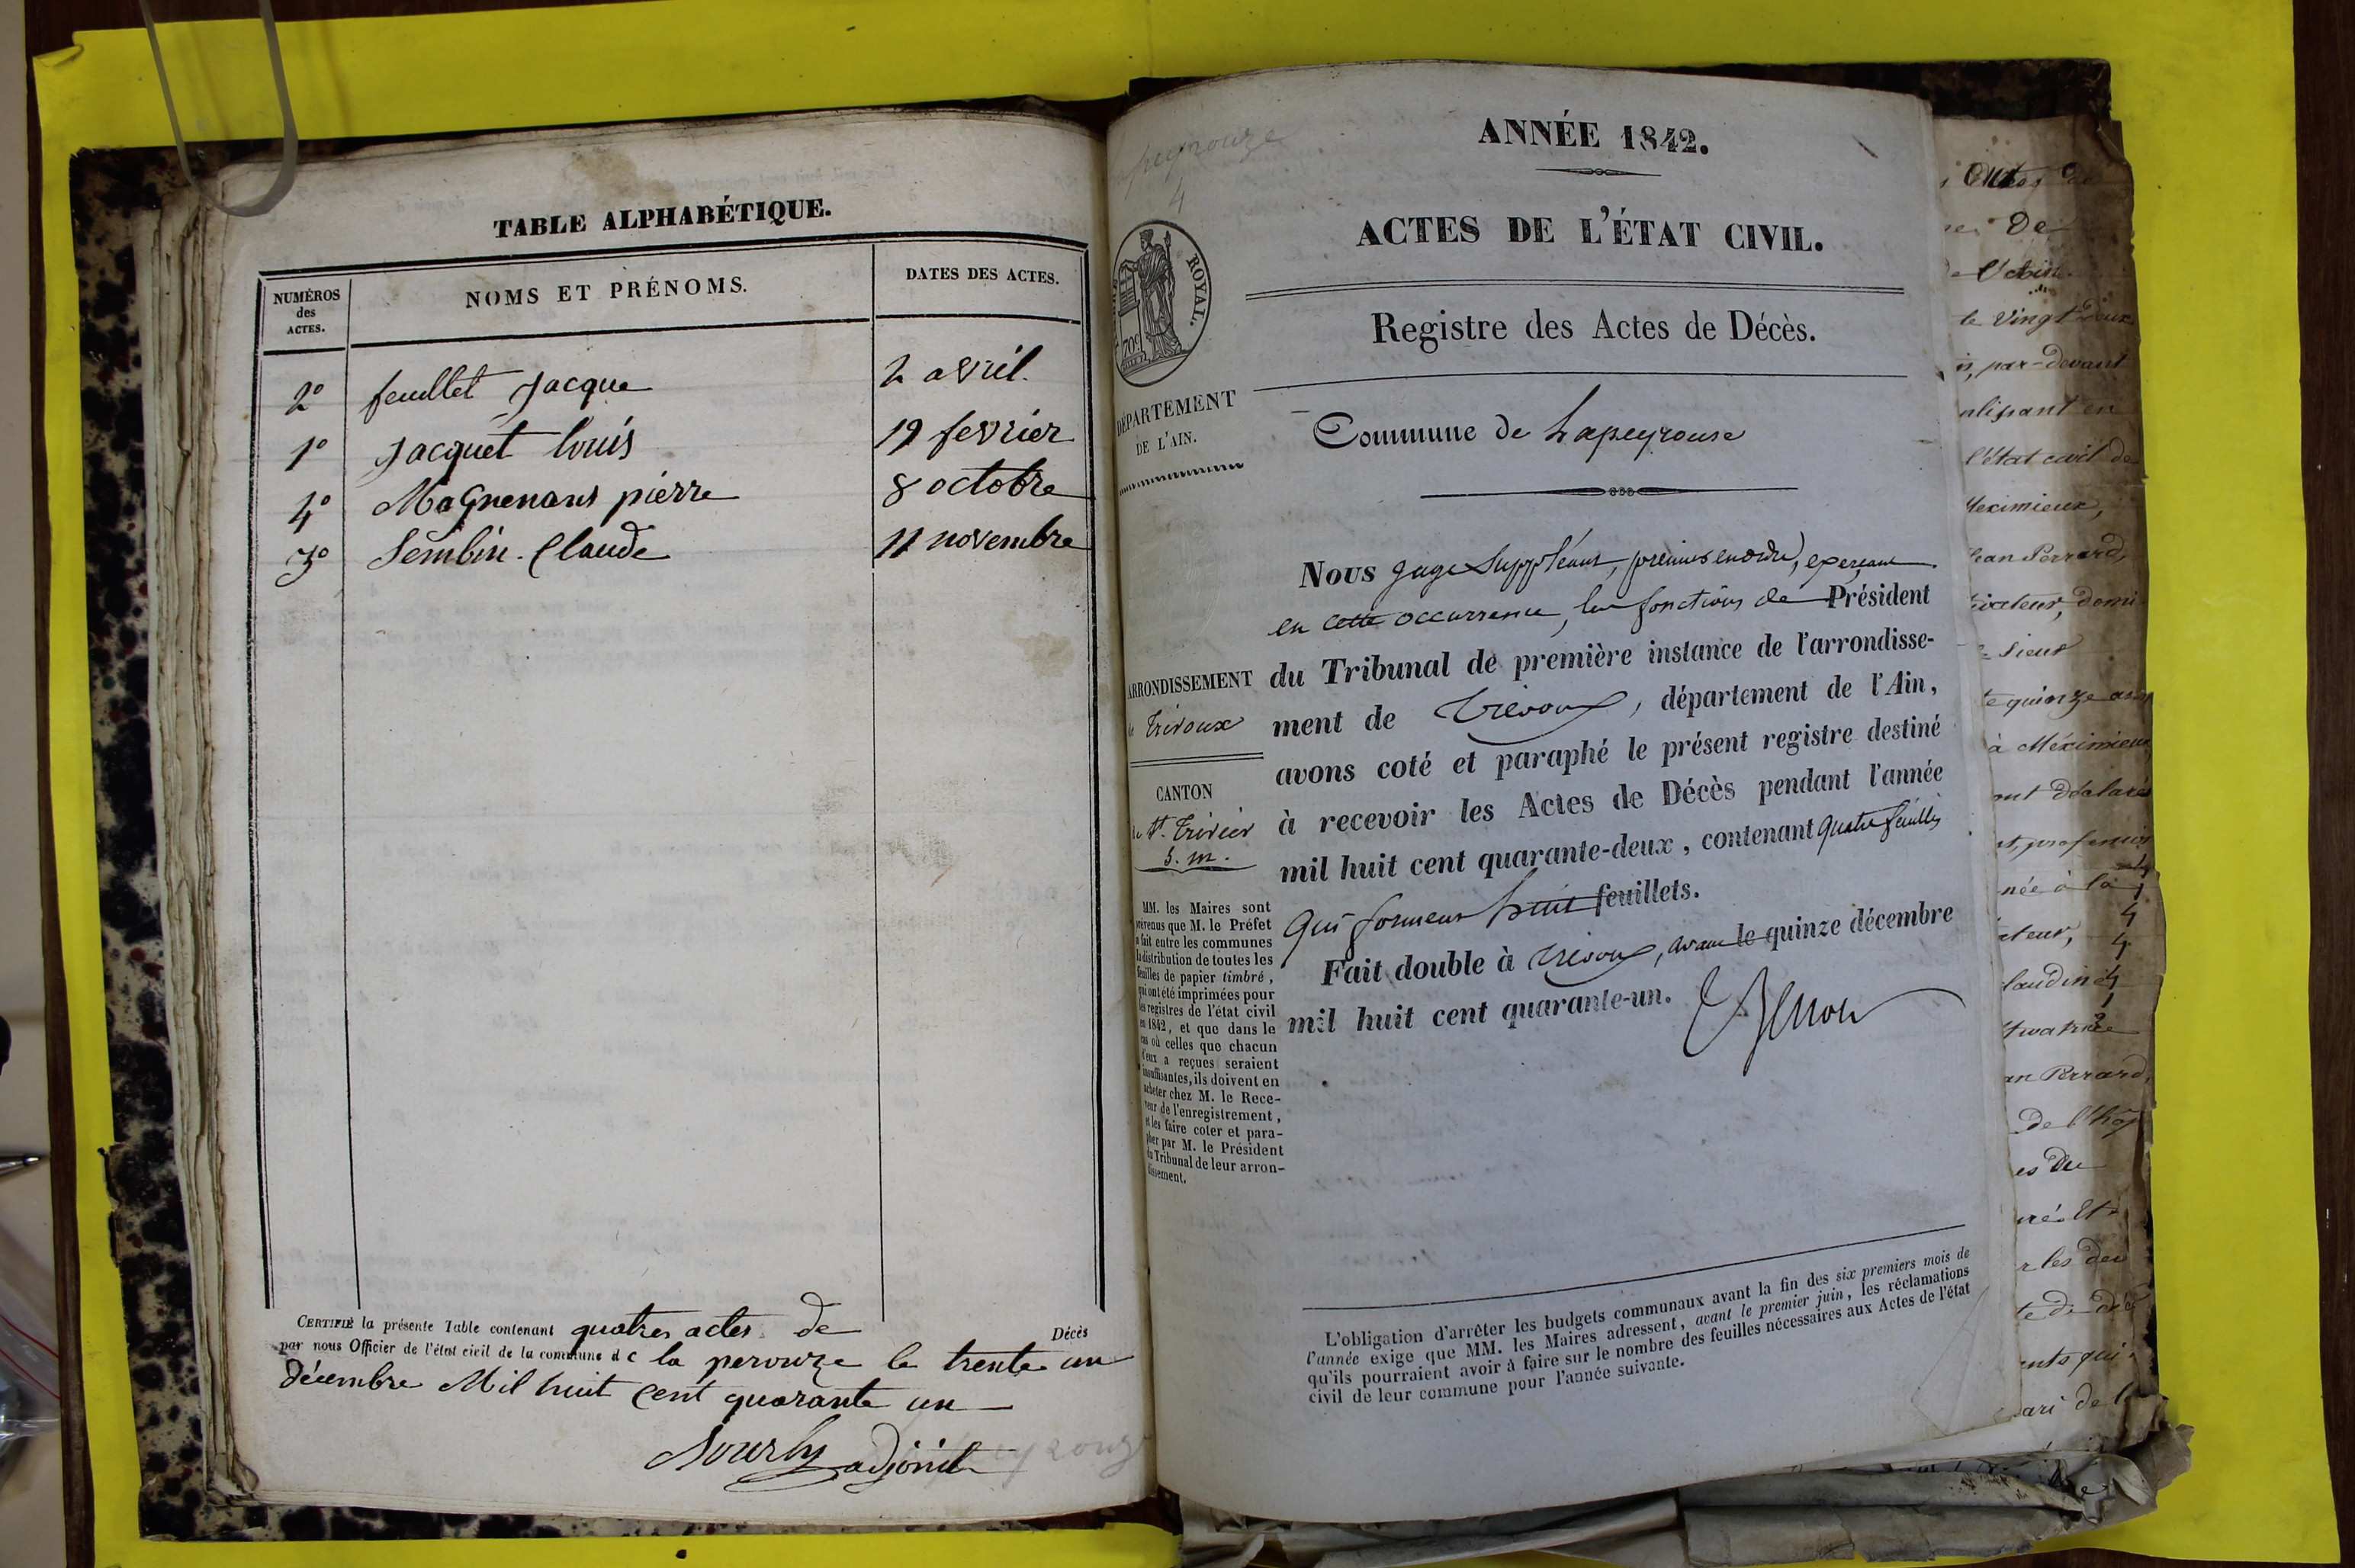 TABLE ALPHABÉTIQUE.
NUMÉROS
des
ACTES.
NOMS ET PRÉNOMS.
DATES DES ACTES.
2° feuillet Jacque 2 avril.
1° Jacquet louis 19 fevrier
4° Magnenans pierre 8 octobre
3° Semblin. Claude 11 novembre
CERTIFIÉ la présente Table contenant quatres actes de Décès
par nous Officier de l'état civil de la commune de la perouze le trente un
décembre Mil huit Cent quarante un
adjoint
peyrouze
4
ANNÉE 1842.
ACTES DE L'ÉTAT CIVIL.
ROYAL.
70c
Registre des Actes de Décès.
DÉPARTEMENT
DE L'AIN.
Commune de Lapeyrouse
ARRONDISSEMENT
de Trévoux
CANTON
de St. Trivier
s. m.
MM. les Maires sont
prévenus que M. le Préfet
a fait entre les communes
la distribution de toutes les
feuilles de papier timbré,
qui ont été imprimées pour
les registres de l'état civil
en 1842, et que dans le
cas où celles que chacun
d'eux a reçues seraient
insuffisantes, ils doivent en
acheter chez M. le Rece-
veur de l'enregistrement,
et les faire coter et para-
pher par M. le Président
du Tribunal de leur arron-
dissement.
Nous Juge Suppléant, premier en ordre, exerçant
en cette occurrence, les fonctions de Président
du Tribunal de première instance de l'arrondisse-
ment de Trévoux, département de l'Ain,
avons coté et paraphé le présent registre destiné
à recevoir les Actes de Décès pendant l'année
mil huit cent quarante-deux, contenant quatre feuilles
qui forment huit feuillets.
Fait double à Trévoux, avant le quinze décembre
mil huit cent quarante-un.
L'obligation d'arrêter les budgets communaux avant la fin des six premiers mois de
l'année exige que MM. les Maires adressent, avant le premier juin, les réclamations
qu'ils pourraient avoir à faire sur le nombre des feuilles nécessaires aux Actes de l'état
civil de leur commune pour l'année suivante.
de
le vingt deux
par-devant
l'état civil de
Meximieux,
Jean Perrard,
domi
Sieur
quinze ans
à Méximieux
ont déclaré
née à la
de l'hop
es du